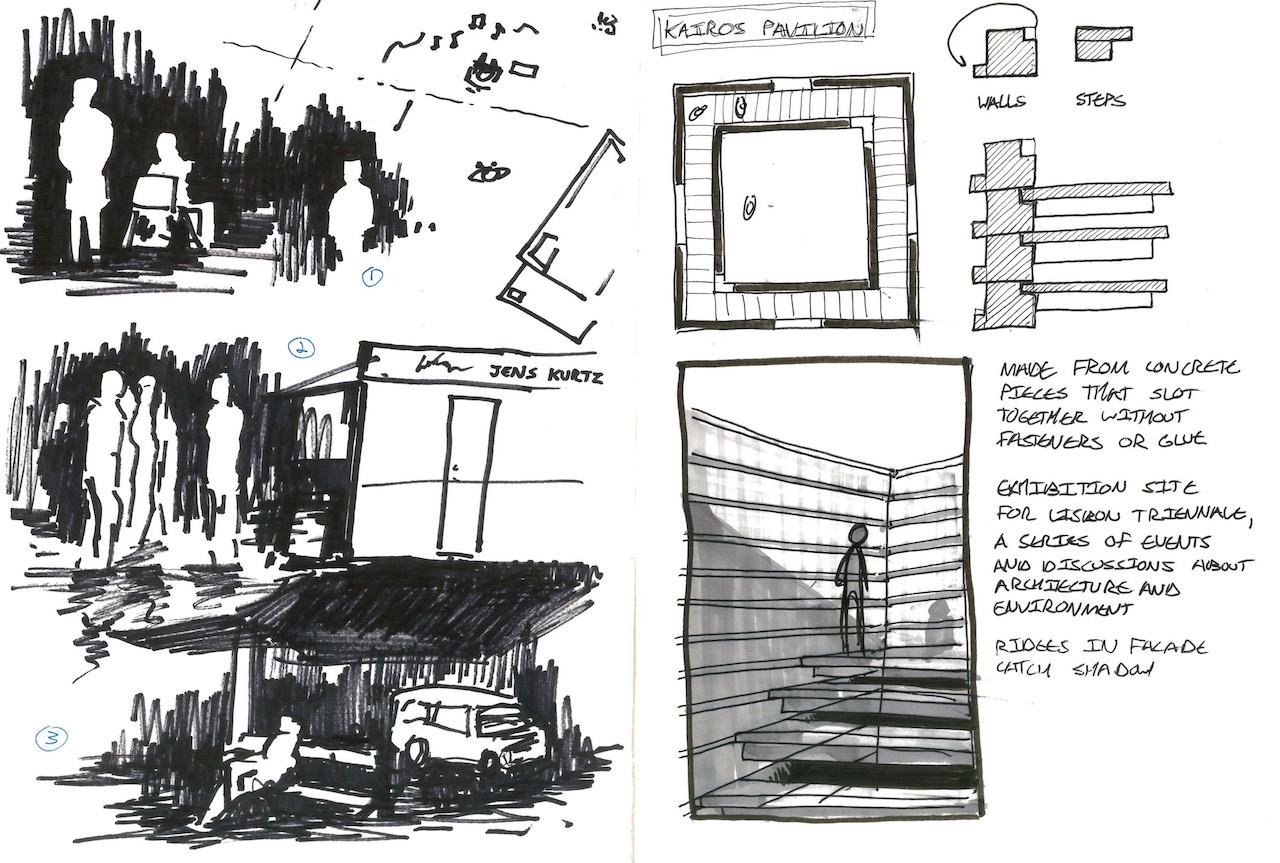 1
2
JENS KURTZ
3
KAIROS PAVILION
WALLS
STEPS
MADE FROM CONCRETE
PIECES THAT SLOT
TOGETHER WITHOUT
FASTENERS OR GLUE
EXHIBITION SITE
FOR LISBON TRIENNALE,
A SERIES OF EVENTS
AND DISCUSSIONS ABOUT
ARCHITECTURE AND
ENVIRONMENT
RIDGES IN FACADE
CATCH SHADOW